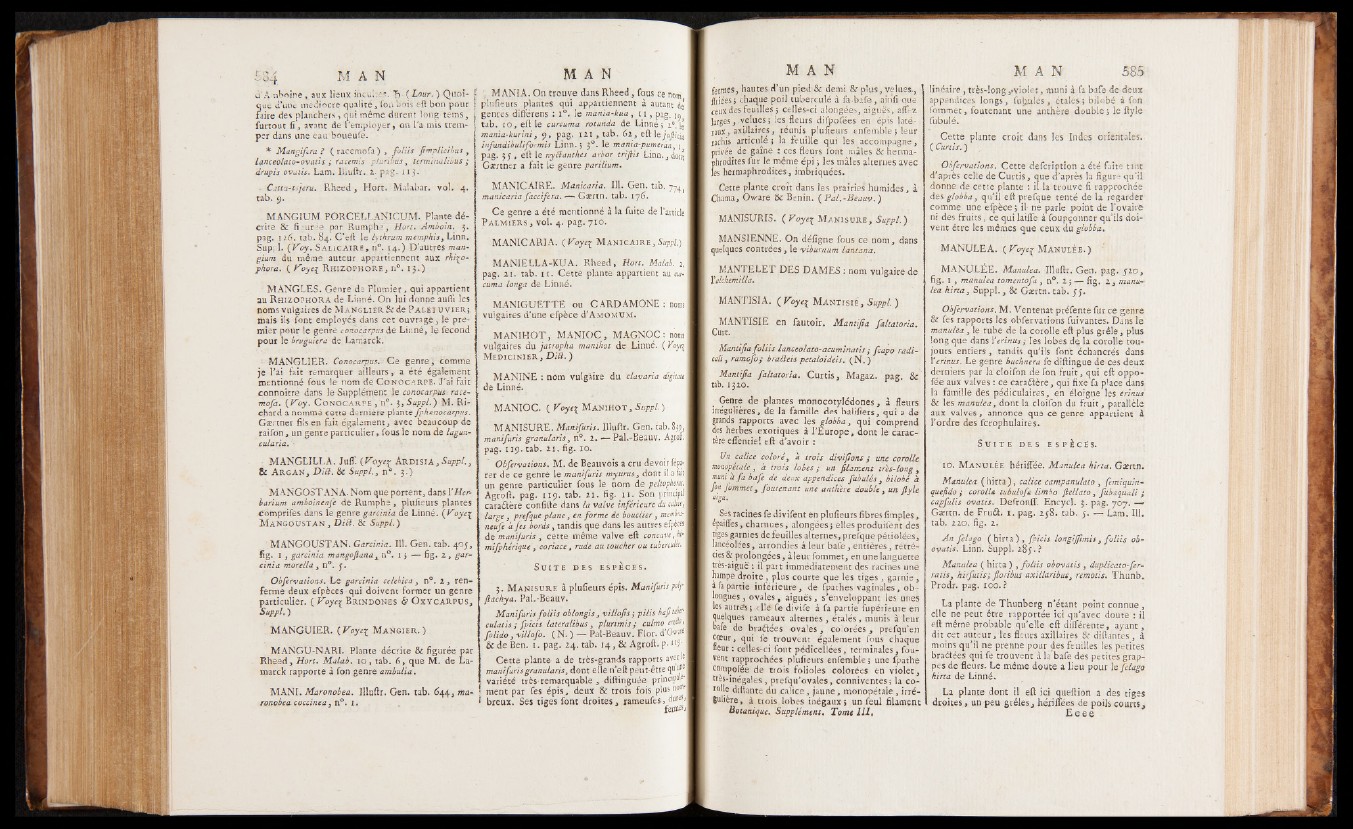 584 M A N
d'Amboine, aux lieux incultes. ♄ (Lour.) Quoi-
que d'une médiocre qualité, son bois est bon pour
faire des planchers, qui même durent long-tems,
surtout si, avant de l'employer, on l'a mis trem-
per dans une eau boueuse.
* Mangifera ? (racemosa), foliis simplicibus,
lanceolato-ovatis; racemis pluribus, terminalibus;
drupis ovatis. Lam. Illustr. 2. pag. 113.
Catta-tsjeru. Rheed, Hort. Malabar. vol. 4.
tab. 9.
MANGIUM PORCELLANICUM. Plante dé-
crite & figurée par Rumphe, Hort. Amboin. 3.
pag. 126. tab. 84. C'est le lythrum pemphis, Linn.
Suppl. (Voy. SALICAIRE, n°. 14.) D'autres man-
gium du même auteur appartiennent aux rhizo-
phora. (Voyez RHIZOPHORE, n°. 13.)
MANGLES. Genre de Plumier, qui appartient
au RHIZOPHORA de Linné. On lui donne aussi les
noms vulgaires de MANGLIER & de PALETUVIER;
mais ils sont employés dans cet ouvrage, le pre-
mier pour le genre conocarpus de Linné, le second
pour le bruguiera de Lamarck.
MANGLIER. Conocarpus. Ce genre, comme
je l'ai fait remarquer ailleurs, a été également
mentionné sous le nom de CONOCARPE. J'ai fait
connoître dans le Supplément le conocarpus race-
mosa. (Voy. CONOCARPE, n°. 3, Suppl.) M. Ri-
chard a nommé cette dernière plante sphenocarpus.
Gærtner fils en fait également, avec beaucoup de
raison, un genre particulier, sous le nom de lagun-
cularia.
MANGLILLA. Juss. (Voyez ARDISIA, Suppl.,
& ARGAN, Dict. & Suppl., n°. 3.)
MANGOSTANA. Nom que portent, dans l'Her-
barium amboinense de Rumphe, plusieurs plantes
comprises dans le genre garcinia de Linné. (Voyez
MANGOUSTAN, Dict. & Suppl.)
MANGOUSTAN. Garcinia. Ill. Gen. tab. 405,
fig. 1, garcinia mangostana, n°. 13 — fig. 2, gar-
cinia morella, n°. 5.
Observations. Le garcinia celebica, n°. 2, ren-
ferme deux espèces qui doivent former un genre
particulier. (Voyez BRINDONES & OXYCARPUS,
Suppl.)
MANGUIER. (Voyez MANGIER.)
MANGU-NARI. Plante décrite & figurée par
Rheed, Hort. Malab. 10, tab. 6, que M. de La-
marck rapporte à son genre ambulia.
MANI. Moronobea. Illustr. Gen. tab. 644, mo-
ronobea coccinea, n°. 1.
M A N
MANIA. On trouve dans Rheed, sous ce nom,
plusieurs plantes qui appartiennent à autant de
genres différens: 1°. le mania-kua, 11, pag. 19,
tab. 10, est le curcuma rotunda de Linné; 2°. le
mania-kurini, 9, pag. 121, tab. 62, est le justicia
infundibuliformis Linn.; 3°. le mania-pumeram, 1,
pag. 35, est le nyctanthes arbor tristis Linn., dont
Gærtner a fait le genre parilium.
MANICAIRE. Manicaria. Ill. Gen. tab. 774,
manicaria saccifera. — Gærtn. tab. 176.
Ce genre a été mentionné à la suite de l'article
PALMIERS, vol. 4. pag. 710.
MANICARIA. (Voyez MANICAIRE, Suppl.)
MANIELLA-KUA. Rheed, Hort. Malab. 2.
pag. 21. tab. 11. Cette plante appartient au cu-
cuma longa de Linné.
MANIGUETTE ou CARDAMONE: noms
vulgaires d'une espèce d'AMOMUM.
MANIHOT, MANIOC, MAGNOC: noms
vulgaires du jatropha manihot de Linné. (Voyez
MEDICINIER, Dict.)
MANINE: nom vulgaire du clavaria digitata
de Linné.
MANIOC. (Voyez MANIHOT, Suppl.)
MANISURE. Manisuris. Illustr. Gen. tab. 839,
manisuris granularis, n°. 2. — Pal.-Beauv. Agrost.
pag. 119. tab. 21. fig. 10.
Observations. M. de Beauvois a cru devoir sépa-
rer de ce genre le manisuris myurus, dont il a fait
un genre particulier sous le nom de peltophorus,
Agrost. pag. 119. tab. 21. fig. 11. Son principal
caractère consiste dans la valve inférieure du calice,
large, presque plane, en forme de bouclier, membra-
neuse à ses bords, tandis que dans les autres espèces
de manisuris, cette même valve est concave, hé-
misphérique, coriace, rude au toucher ou tuberculée.
SUITE DES ESPÈCES.
3. MANISURE à plusieurs épis. Manisuris poly-
stachya. Pal.-Beauv.
Manisuris foliis oblongis, villosis; pilis basi tuber-
culatis; spicis lateralibus, plurimis; culmo erecto,
solido, villoso. (N.) — Pal-Beauv. Flor. d'Oware
& de Ben. 1. pag. 24. tab. 14, & Agrost. p. 119
Cette plante a de très-grands rapports avec le
manisuris granularis, dont elle n'est peut-être qu'une
variété très-remarquable, distinguée principale-
ment par ses épis, deux & trois fois plus nom-
breux. Ses tiges sont droites, rameuses, dures,
fermes,
M A N
fermes, hautes d'un pied & demi & plus, velues,
striées; chaque poil tuberculé à sa base, ainsi que
ceux des feuilles; celles-ci alongées, aiguës, assez
larges, velues; les fleurs disposées en épis laté-
raux, axillaires, réunis plusieurs ensemble; leur
rachis articulé; la feuille qui les accompagne,
privée de gaîne: ces fleurs sont mâles & herma-
phrodites sur le même épi; les mâles alternes avec
les hermaphrodites, imbriquées.
Cette plante croît dans les prairies humides, à
Chama, Oware & Benin. (Pal.-Beauv.)
MANISURIS. (Voyez MANISURE, Suppl.)
MANSIENNE. On désigne sous ce nom, dans
quelques contrées, le viburnum lantana.
MANTELET DES DAMES: nom vulgaire de
l'alchemilla.
MANTISIA. (Voyez MANTISIE, Suppl.)
MANTISIE en sautoir. Mantisia saltatoria.
Curt.
Mantisia foliis lanceolato-acuminatis; scapo radi-
cali, ramoso; bracteis petaloideis. (N.)
Mantisia saltatoria. Curtis, Magaz. pag. &
tab. 1320.
Genre de plantes monocotylédones, à fleurs
irrégulières, de la famille des balisiers, qui a de
grands rapports avec les globba, qui comprend
des herbes exotiques à l'Europe, dont le carac-
tère essentiel est d'avoir:
Un calice coloré, à trois divisions; une corolle
monopétale, à trois lobes; un filament très-long,
muni à sa base de deux appendices subulés, bilobé à
son sommet, soutenant une anthère double, un style
Ses racines se divisent en plusieurs fibres simples,
épaisses, charnues, alongées; elles produisent des
tiges garnies de feuilles alternes, presque pétiolées,
lancéolées, arrondies à leur base, entières, rétré-
cies & prolongées, à leur sommet, en une languette
très-aiguë: il part immédiatement des racines une
hampe droite, plus courte que les tiges, garnie,
à sa partie inférieure, de spathes vaginales, ob-
longues, ovales, aiguës, s'enveloppant les unes
les autres; elle se divise à sa partie supérieure en
quelques rameaux alternes, étalés, munis à leur
base de bractées ovales, colorées, presqu'en
cœur, qui se trouvent également sous chaque
fleur: celles-ci sont pédicellées, terminales, sou-
vent rapprochées plusieurs ensemble; une spathe
composée de trois folioles colorées en violet,
très-inégales, presqu'ovales, conniventes; la co-
rolle distante du calice, jaune, monopétale, irré-
gulière, à trois lobes inégaux; un seul filament
Botanique. Supplément. Tome III.
M A N 585
linéaire, très-long, violet, muni à sa base de deux
appendices longs, subulés, étalés; bilobé à son
sommet, soutenant une anthère double; le style
subulé.
Cette plante croît dans les Indes orientales.
(Curtis.)
Observations. Cette description a été faite tant
d'après celle de Curtis, que d'après la figure qu'il
donne de cette plante: il la trouve si rapprochée
des globba, qu'il est presque tenté de la regarder
comme une espèce; il ne parle point de l'ovaire
ni des fruits, ce qui laisse à soupçonner qu'ils doi-
vent être les mêmes que ceux du globba.
MANULEA. (Voyez MANULÉE.)
MANULÉE. Manulea. Illustr. Gen. pag. 520,
fig. 1, manulea tomentosa, n°. 2; — fig. 2, manu-
lea hirta, Suppl., & Gærtn. tab. 55.
Observations. M. Ventenat présente sur ce genre
& ses rapports les observations suivantes. Dans le
manulea, le tube de la corolle est plus grêle, plus
long que dans l'erinus; les lobes de la corolle tou-
jours entiers, tandis qu'ils sont échancrés dans
l'erinus. Le genre buchnera se distingue de ces deux
derniers par la cloison de son fruit, qui est oppo-
sée aux valves: ce caractère, qui fixe sa place dans
la famille des pédiculaires, en éloigne les erinus
& les manulea, dont la cloison du fruit, parallèle
aux valves, annonce que ce genre appartient à
l'ordre des scrophulaires.
SUITE DES ESPÈCES.
10. MANULÉE hérissée. Manulea hirta. Gærtn.
Manulea (hirta), calice campanulato, semiquin-
quefido; corolla tubulosa limbo stellato, subæquali;
capsulis ovatis. Desrouss. Encycl. 3. pag. 707. —
Gærtn. de Fruct. 1. pag. 258. tab. 5. — Lam. Ill.
tab. 220. fig. 2.
An selago (hirta), spicis longissimis, foliis ob-
ovatis. Linn. Suppl. 285.?
Manulea (hirta), foliis obovatis, duplicato-ser-
ratis, hirsutis; floribus axillaribus, remotis. Thunb.
Prodr. pag. 100.?
La plante de Thunberg n'étant point connue,
elle ne peut être rapportée ici qu'avec doute: il
est même probable qu'elle est différente, ayant,
dit cet auteur, les fleurs axillaires & distantes, à
moins qu'il ne prenne pour des feuilles les petites
bractées qui se trouvent à la base des petites grap-
pes de fleurs. Le même doute a lieu pour le selago
hirta de Linné.
La plante dont il est ici question a des tiges
droites, un peu grêles, hérissées de poils courts,
E e e e